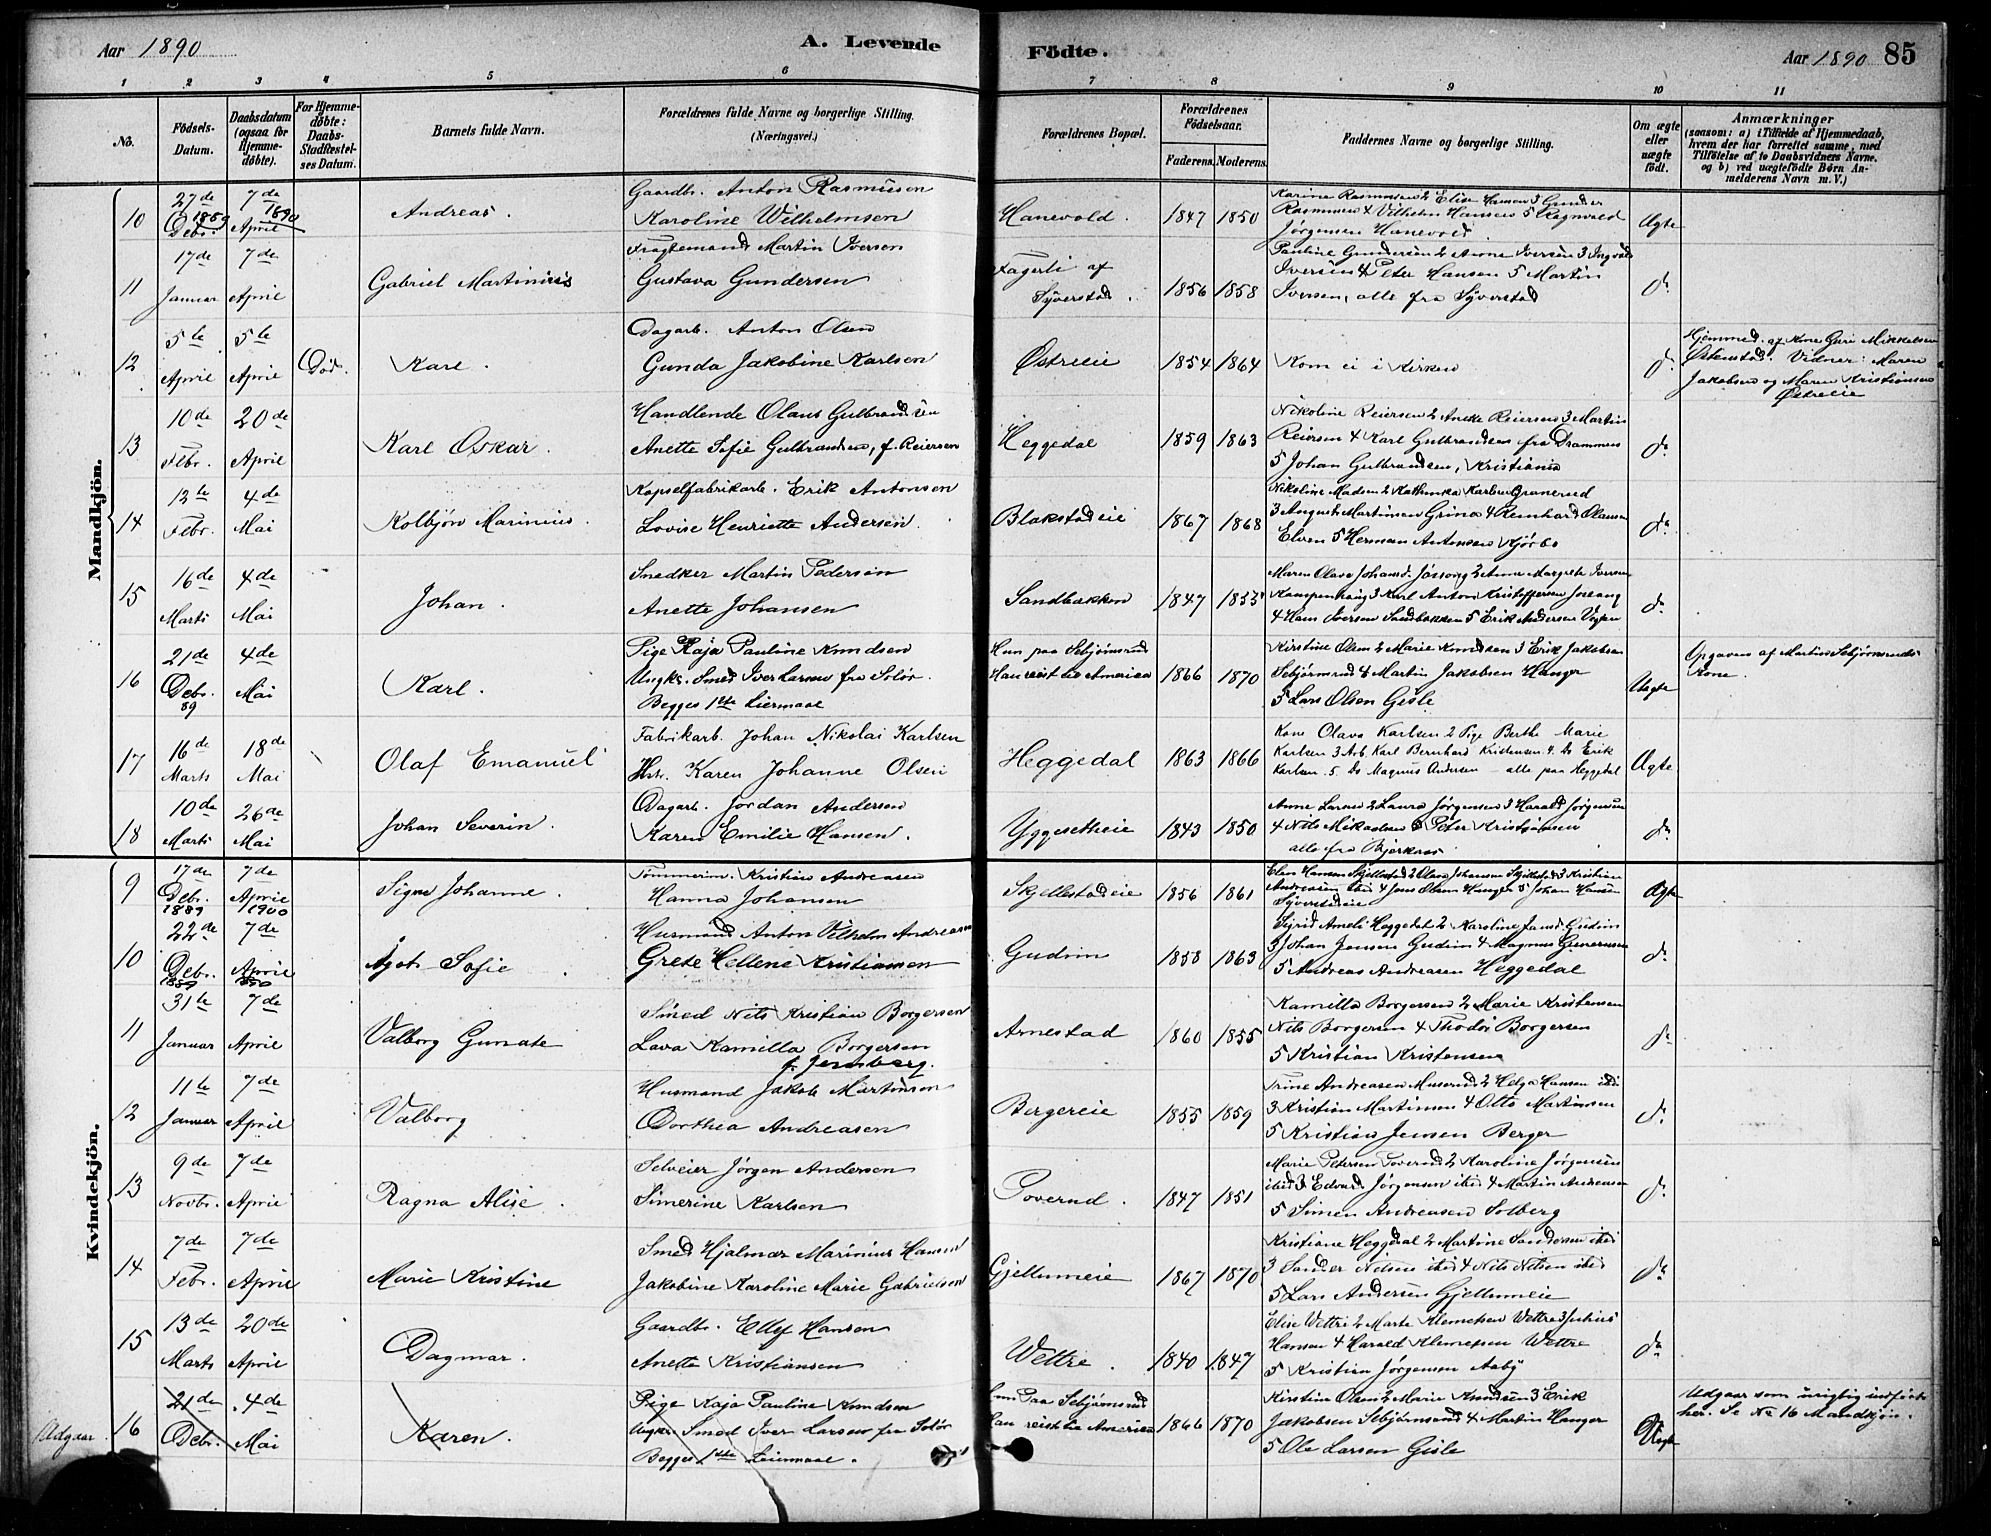 Aar 1890
A. Levende
Födte.
Aar 1890
85
1 2 3 4 5 6 7 8 9 10 11
No.
Fødsels-Datum.
Daabsdatum (ogsaa for Hjemme-döbte).
For Hjemme-döbte: Daabs-Stadfæstel-ses Datum.
Barnets fulde Navn.
Forældrenes fulde Navne og borgerlige Stilling. (Næringsvei.)
Forældrenes Bopæl.
Forældrenes Födselsaar.
Faderens. Moderens.
Faddernes Navne og borgerlige Stilling.
Om ægte eller uægte født.
Anmærkninger
(saasom: a) i Tilfælde af Hjemmedaab,
hvem der har forrettet samme, med
Tilföielse af to Daabsvidners Navne,
og b) ved uægtefödte Börn An-
melderens Navn m. V.)
Mandkjön.
10 27de Debr. 1889 7de April 1890
Andreas.
Gaardbr. Anton Rasmussen
Karoline Wilhelmsen
Hanevold. 1847 1850
Karine Rasmussen 2 Elise Hansen 3 Gunder
Rasmussen 4 Vilhelm Hansen 5 Ragnvald
Jørgensen Hanevold.
Ægte
11 17de Januar 7de April
Gabriel Martinius
Fragtemand Martin Iversen
Gustava Gundersen
Fagerli af
Syverstad. 1856 1858
Pauline Gundersen 2 Anne Iversen 3 Ingvald
Iversen 4 Peter Hansen 5 Martin
Iversen, alle fra Syverstad
do
12 5te April 5te April Död.
Karl.
Dagarb. Anton Olsen
Gunda Jakobine Karlsen
Østreeie 1854 1864
Kom ei i Kirken
do
Hjemmed. af Kone Guri Mikkelsen
Østenstad. Vidner: Maren
Jakobsen og Maren Kristiansen
Østreeie
13 10de Febr. 20de April
Karl Oskar.
Handlende Olaus Gulbrandsen
Anette Sofie Gulbrandsen, f. Reiersen
Heggedal 1859 1863
Nikoline Reiersen 2 Aneke Reiersen 3 Martin
Reiersen 4 Karl Gulbrandsen fra Drammen
5 Johan Gulbrandsen, Kristiania
do
14 13te Febr. 4de Mai
Kolbjørn Marinius.
Kapselfabrikarb. Erik Antonsen
Lovise Henriette Andersen.
Blakstadeie 1867 1868
Nikoline Madsen 2 Kathinka Karlsen Granerud
3 August Martinsen Grina 4 Reinhard Olausen
Elven 5 Herman Antonsen Kjørbo
do
15 16de Marts 4de Mai
Johan.
Snedker Martin Pedersen
Anette Johansen
Sandbakken 1847 1853
Maren Olava Johansd. Jøssong 2 Anne Margrete Iversen
Kampenhaug 3 Karl Anton Kristoffersen Jossong
4 Hans Iversen Sandbakken 5 Erik Andersen Vogen
do
16 21de Debr. 89 4de Mai
Karl.
Pige Kaja Pauline Knudsen
Ungk. Smed Iver Larsen fra Solør.
Begges 1ste Leiermaal
Hun paa Sebjørnsrud
Han reist til Amerika 1866 1870
Kirstine Olsen 2 Marie Knudsen 3 Erik Jakobsen
Sebjørnsrud 4 Martin Jakobsen Hanger
5 Lars Olsen Gisle
Uægte
Opgaven af Martin Sebjørnsruds
Kone.
17 16de Marts 18de Mai
Olaf Emanuel
Fabrikarb. Johan Nikolai Karlsen
Hst. Karen Johanne Olsen
Heggedal 1863 1866
Kone Olava Karlsen 2 Pige Berthe Marie
Karlsen 3 Arb. Karl Bernhard Kristensen 4. do Erik
Karlsen 5 do Magnus Andersen – alle paa Heggedal
Ægte
18 10de Marts 26de Mai
Johan Severin.
Dagarb. Jordan Andersen
Karen Emilie Hansen.
Yggesetheie 1843 1850
Anne Larsen 2 Laura Jørgensen 3 Harald Jørgensen
4 Nils Mikaelsen 5 Peter Kristiansen
alle fra Bjerkaas
do
Kvindekjön.
9 17de Debr. 1889 7de April 1900
Signe Johanne.
Tømmerm. Kristian Andreasen
Hanna Johansen
Skjellestadeie 1856 1861
Elen Hansen Skjellestad 2 Olava Johansen Skjellestad 3 Kristian
Andreasen ibid 4 Jens Olsen Hanger 5 Johan Hansen
Syverstadeie
Ægte
10 22de Debr. 1889 7de April 1890
Agot Sofie.
Husmand Anton Vilhelm Andreasen
Grete Hellene Kristiansen
Gudim 1858 1863
Sigrid Ameli Heggedal 2 Karoline Jansd. Gudim
3 Johan Jensen Gudim 4 Magnus Gunerussen
5 Andreas Andreasen Heggedal
do
11 31te Januar 7de April
Valborg Gunate
Smed Nils Kristian Borgersen
Lava Kamilla Borgersen
f. Jernberg.
Arnestad 1860 1855
Kamilla Borgersen 2 Marie Kristensen
Nils Borgersen 4 Thodor Borgersen
5 Kristian Kristensen
do
12 11te Januar 7de April
Valborg
Husmand Jakob Martinsen
Dorthea Andreasen
Bergereie 1855 1859
Trine Andreasen Muserud 2 Helga Hansen ibid
3 Kristian Martinsen 4 Otto Martinsen
5 Kristian Jensen Berger
do
13 9de Novbr. 7de April
Ragna Alise.
Selveier Jørgen Andersen
Simerine Karlsen
Toverud. 1847 1851
Marie Petersen Toverud 2 Karoline Jørgensen
ibid 3 Edvard Jørgensen ibid 4 Martin Andreasen
5 Simen Andreasen Solberg
do
14 7de Febr. 7de April
Marie Kristine
Smed Hjalmar Marinius Hansen
Jakobine Karoline Marie Gabrielsen
Gjellumeie 1867 1870
Kristiane Heggedal 2 Martine Sandersen ibid
3 Sander Nilsen ibid 4 Nils Nilsen ibid
5 Lars Andersen Gjellumeie
do
15 13de Marts 20de April
Dagmar.
Gaardbr. Ellef Hansen
Anette Kristiansen
Wettre. 1840 1847
Elise Wettre 2 Marte Klemetsen Wettre 3 Julius
Hansen 4 Harald Klemetsen Wettre
5 Kristian Jørgensen Aaby
do
Udgaar. 16 21de Debr. 4de Mai
Karen.
Pige Kaja Pauline Knudsen
Ungk. Smed Iver Larsen fra Solør
Begges 1ste Leiermaal.
Hun paa Sebjørnsrud
Han reist til Amerika 1866 1870
Kirstine Olsen 2 Marie Knudsen 3 Erik
Jakobsen Sebjørnsrud 4 Martin Hanger
5 Ole Larsen Gisle
Uægte
Udgaar som urigtig indført
her. Se No 16 Mandkjøn.